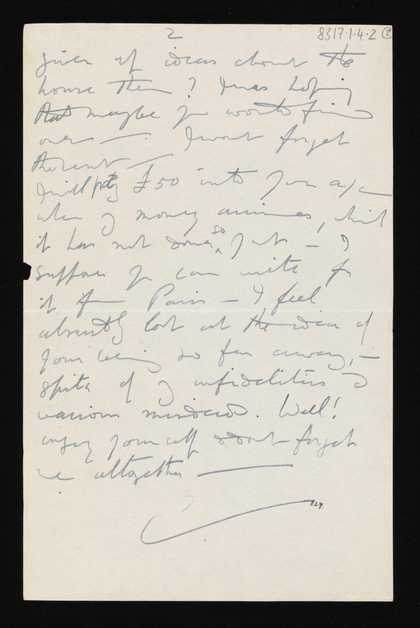 2
8317·1·4·2
given up ideas about the
house then? I was hoping
that maybe you would find
one —. I wont forget
the rent —
I will put £50 into your a/c
when my money arrives, but
it has not done so yet — I
suppose you can write for
it from Paris — I feel
absolutely lost at the idea of
your being so far away, in
spite of my infidelities &
various misdeeds. Well!
enjoy yourself & dont forget
me altogether —